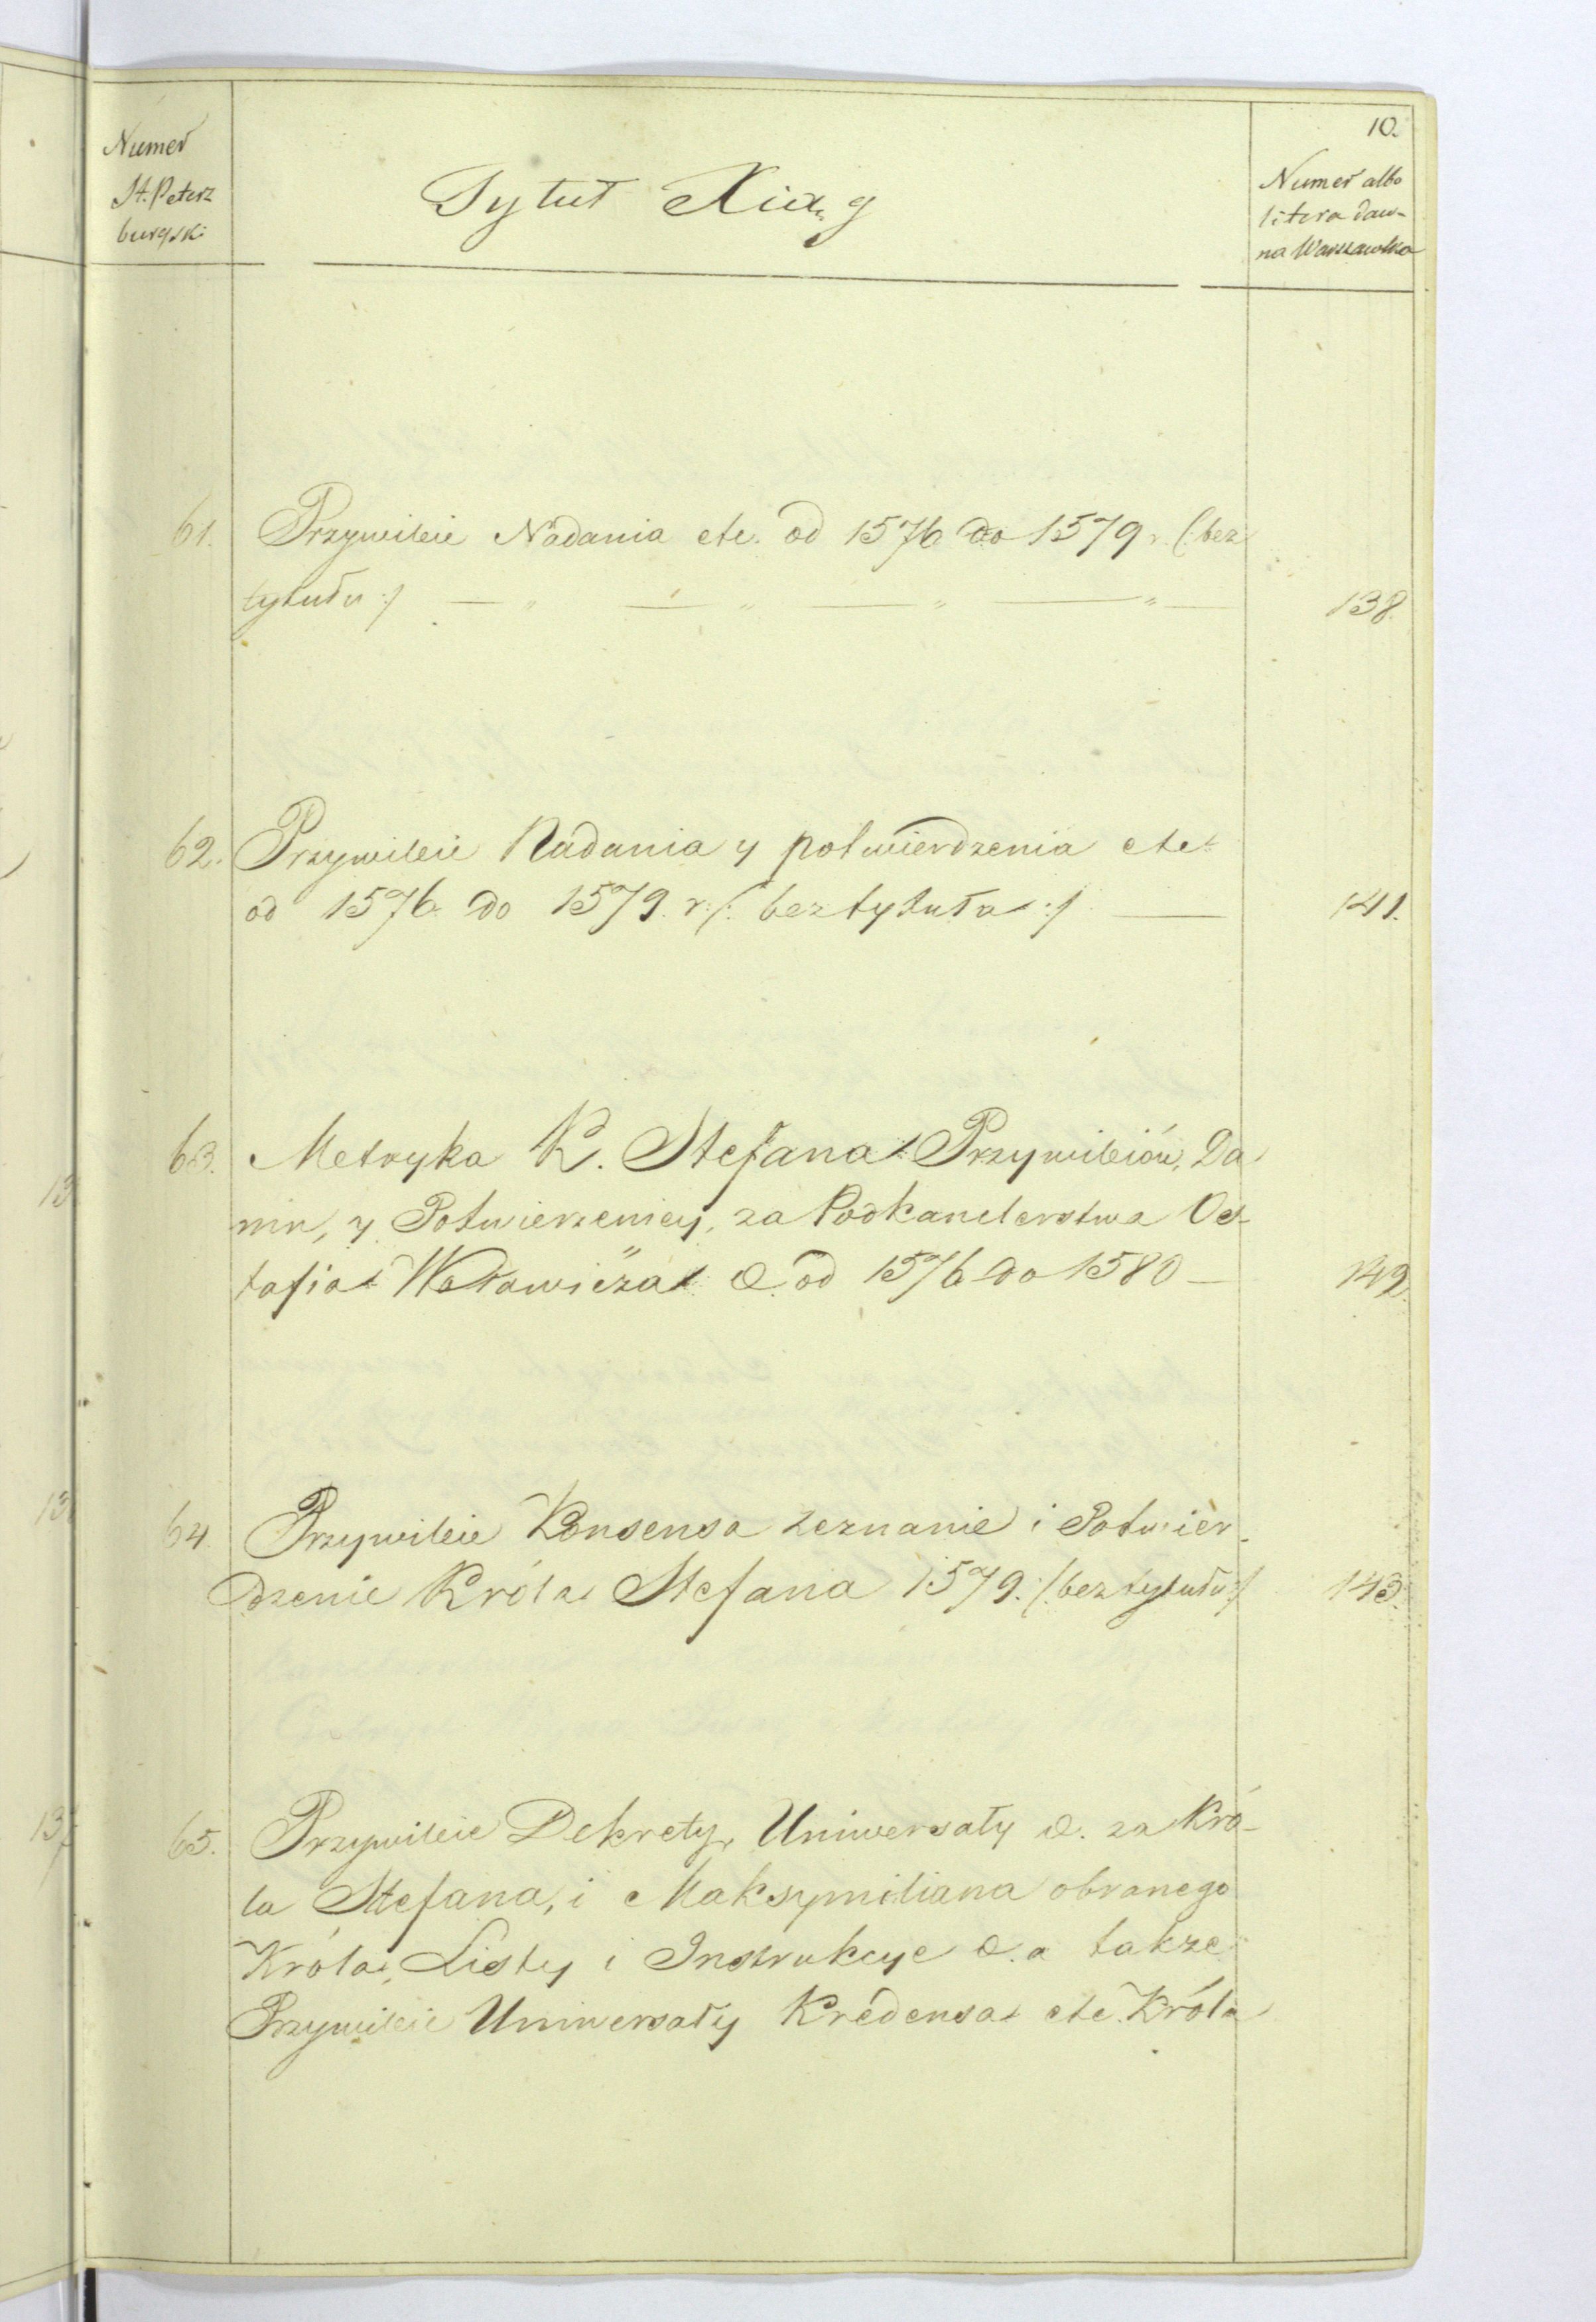 10.
Numer
St. Peterz
burgski
Tytuł Xiąg
Numer albo
litera daw-
na Warszawska
61. Przywileie Nadania etc. od 1576 do 1579 r. (: bez
tytułu :) — „ — „ — „ — „ — 138.
62. Przywileie Nadania y potwierdzenia etc.
od 1576 do 1579. r. (: bez tytułu :) — 141.
63. Metryka K. Stefana Przywileiów, Da
nin, y Potwierzeniey, za Podkanclerstwa Os-
tafia Wołłowicza &. od 1576 do 1580 — 142.
64. Przywileie Konsensa zeznanie i Potwier-
dzenie Króla Stefana 1579. (: bez tytułu :) 143.
65. Przywileie Dekrety, Uniwersały &. za Kró-
la Stefana, i Maksymiliana obranego
Króla, Listy i Instrukcye &. a takze
Przywileie Uniwersały Kredensa etc. Króla
13
13
137